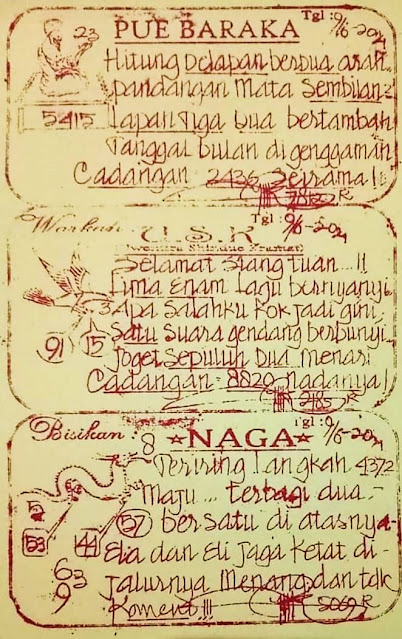 23
PUE BARAKA
Tgl : 9/6-2021
Hitung Delapan berdua arah..
pandangan Mata Sembilan2
5415
Lapan Tiga Dua bertambah
Tanggal bulan di genggaman
Cadangan : 2436 Seirama !!
R
Warkah :
U.S.K
Tgl : 9/6-2021
Selamat siang tuan...!!
Lima Enam lagu bernyanyi
3 Apa Salahku kok jadi gini
91 15
Satu Suara gendang berbunyi...
Joget Sepuluh Dua Menari
Cadangan : 8820 nadanya !
2185 R
Bisikan :
8
NAGA
Tgl : 9/6-2021
Teriring langkah 4372
Maju... terbagi dua -
53 44
57 bersatu di atasnya -
Ela dan Eli jaga ketat di -
63
jalurnya Menang dan tdk
9
Koment !!!
5069 R